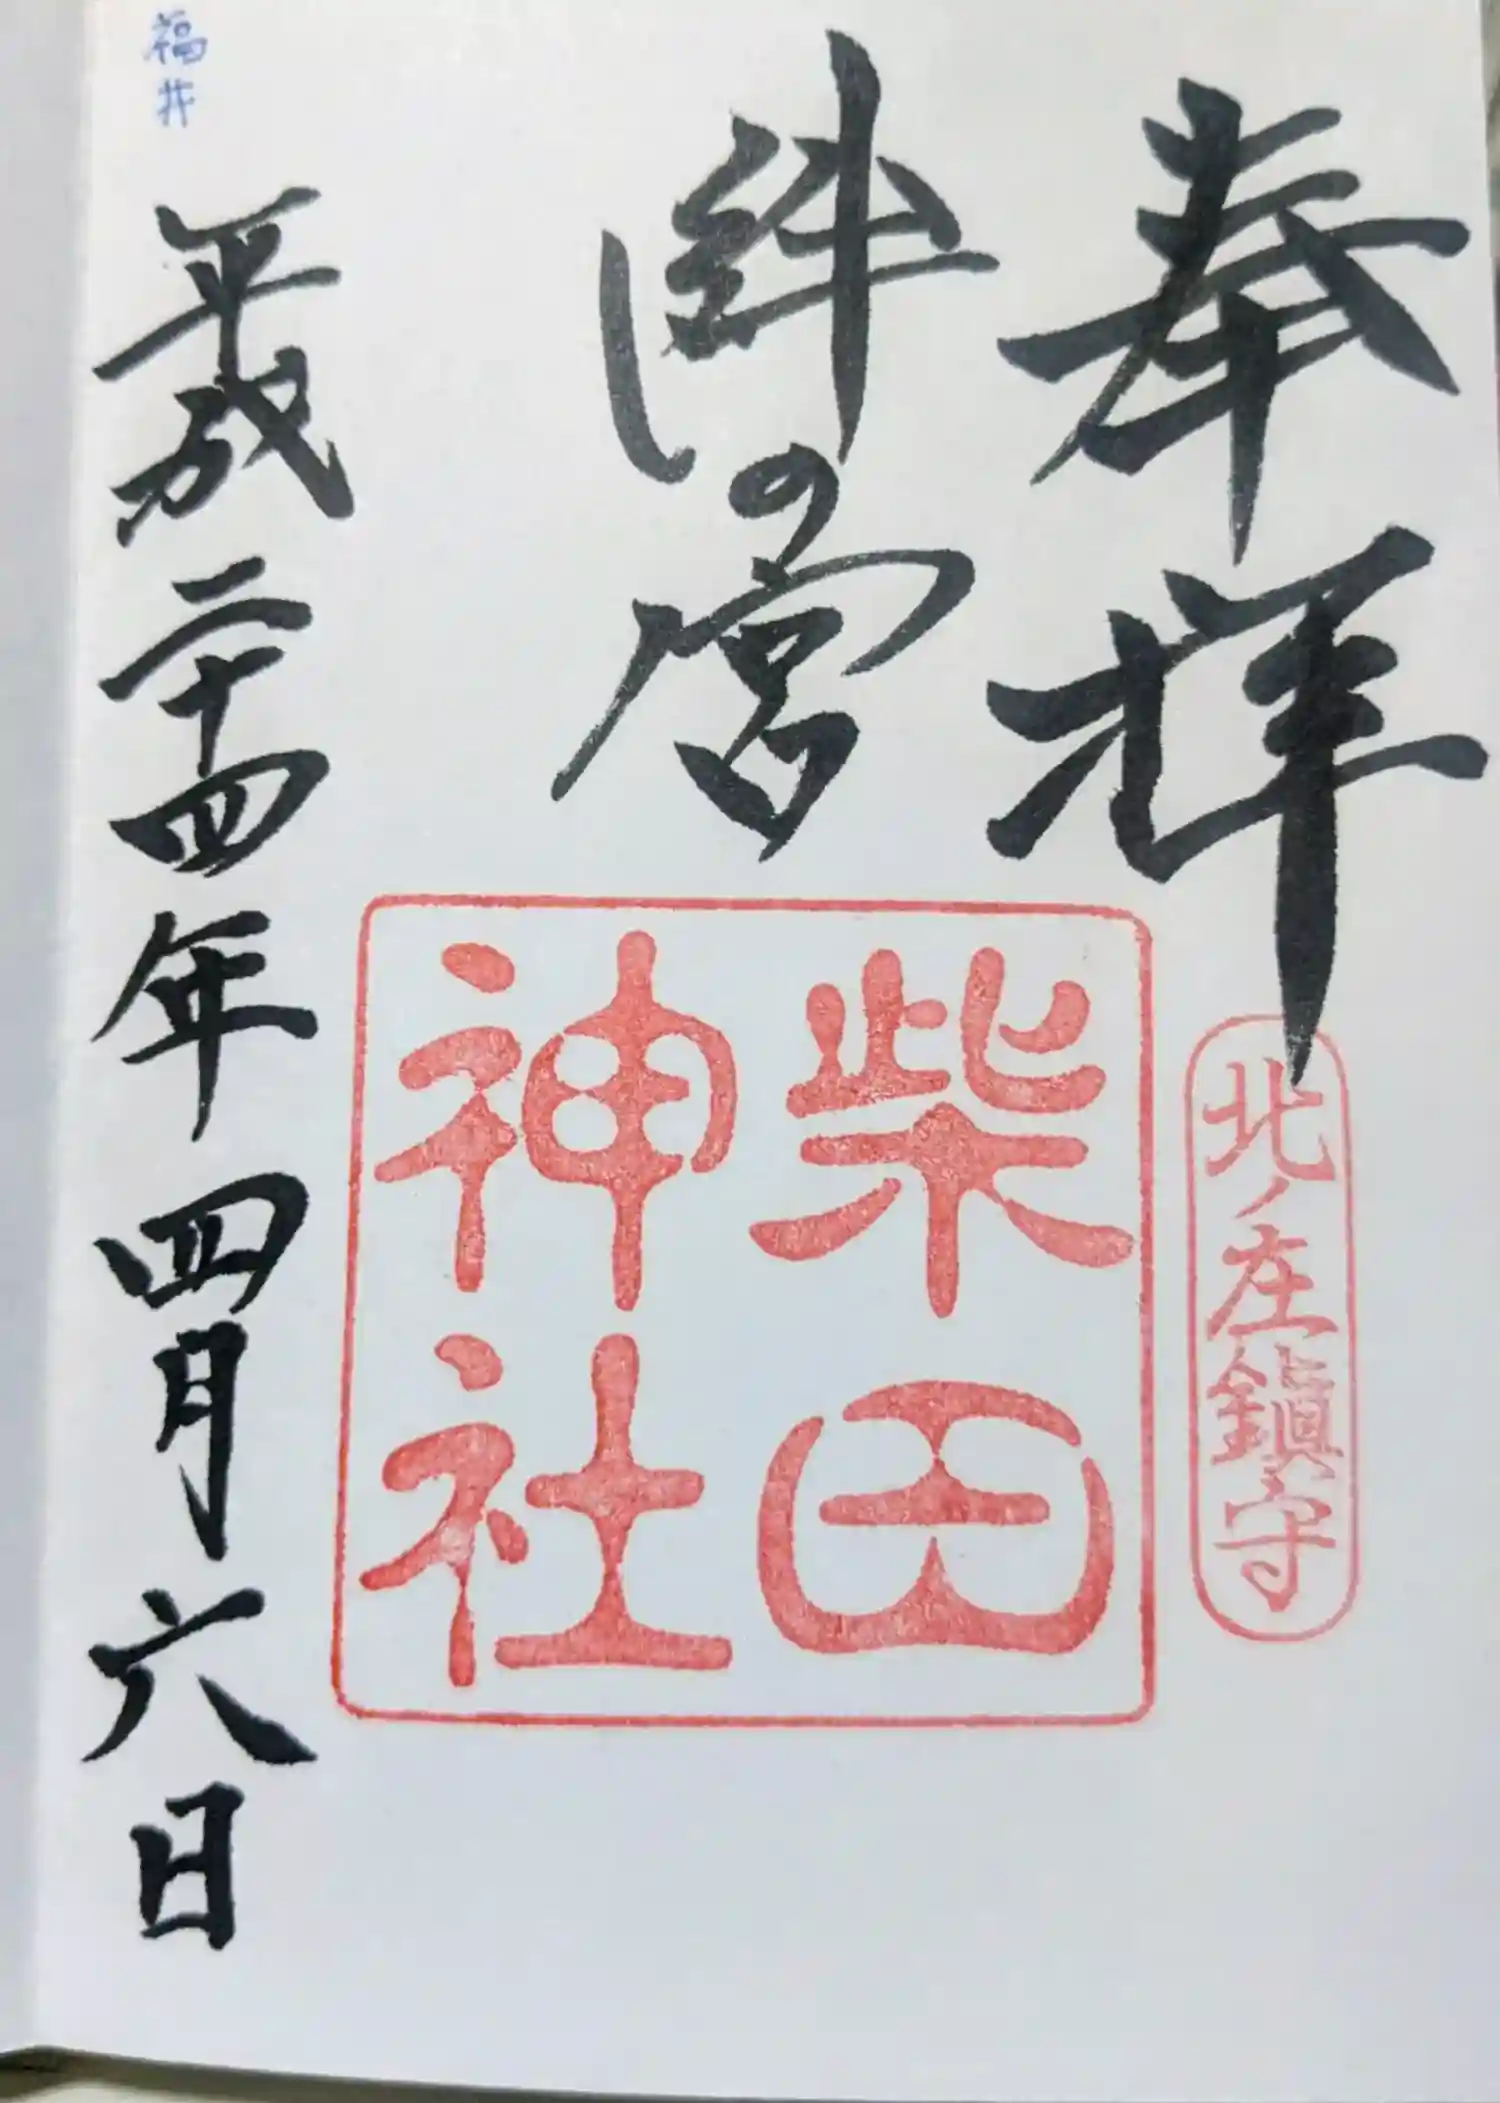 奉拝
北ノ庄鎮守
絆の宮
柴田
神社
平成二十四年四月六日
福井